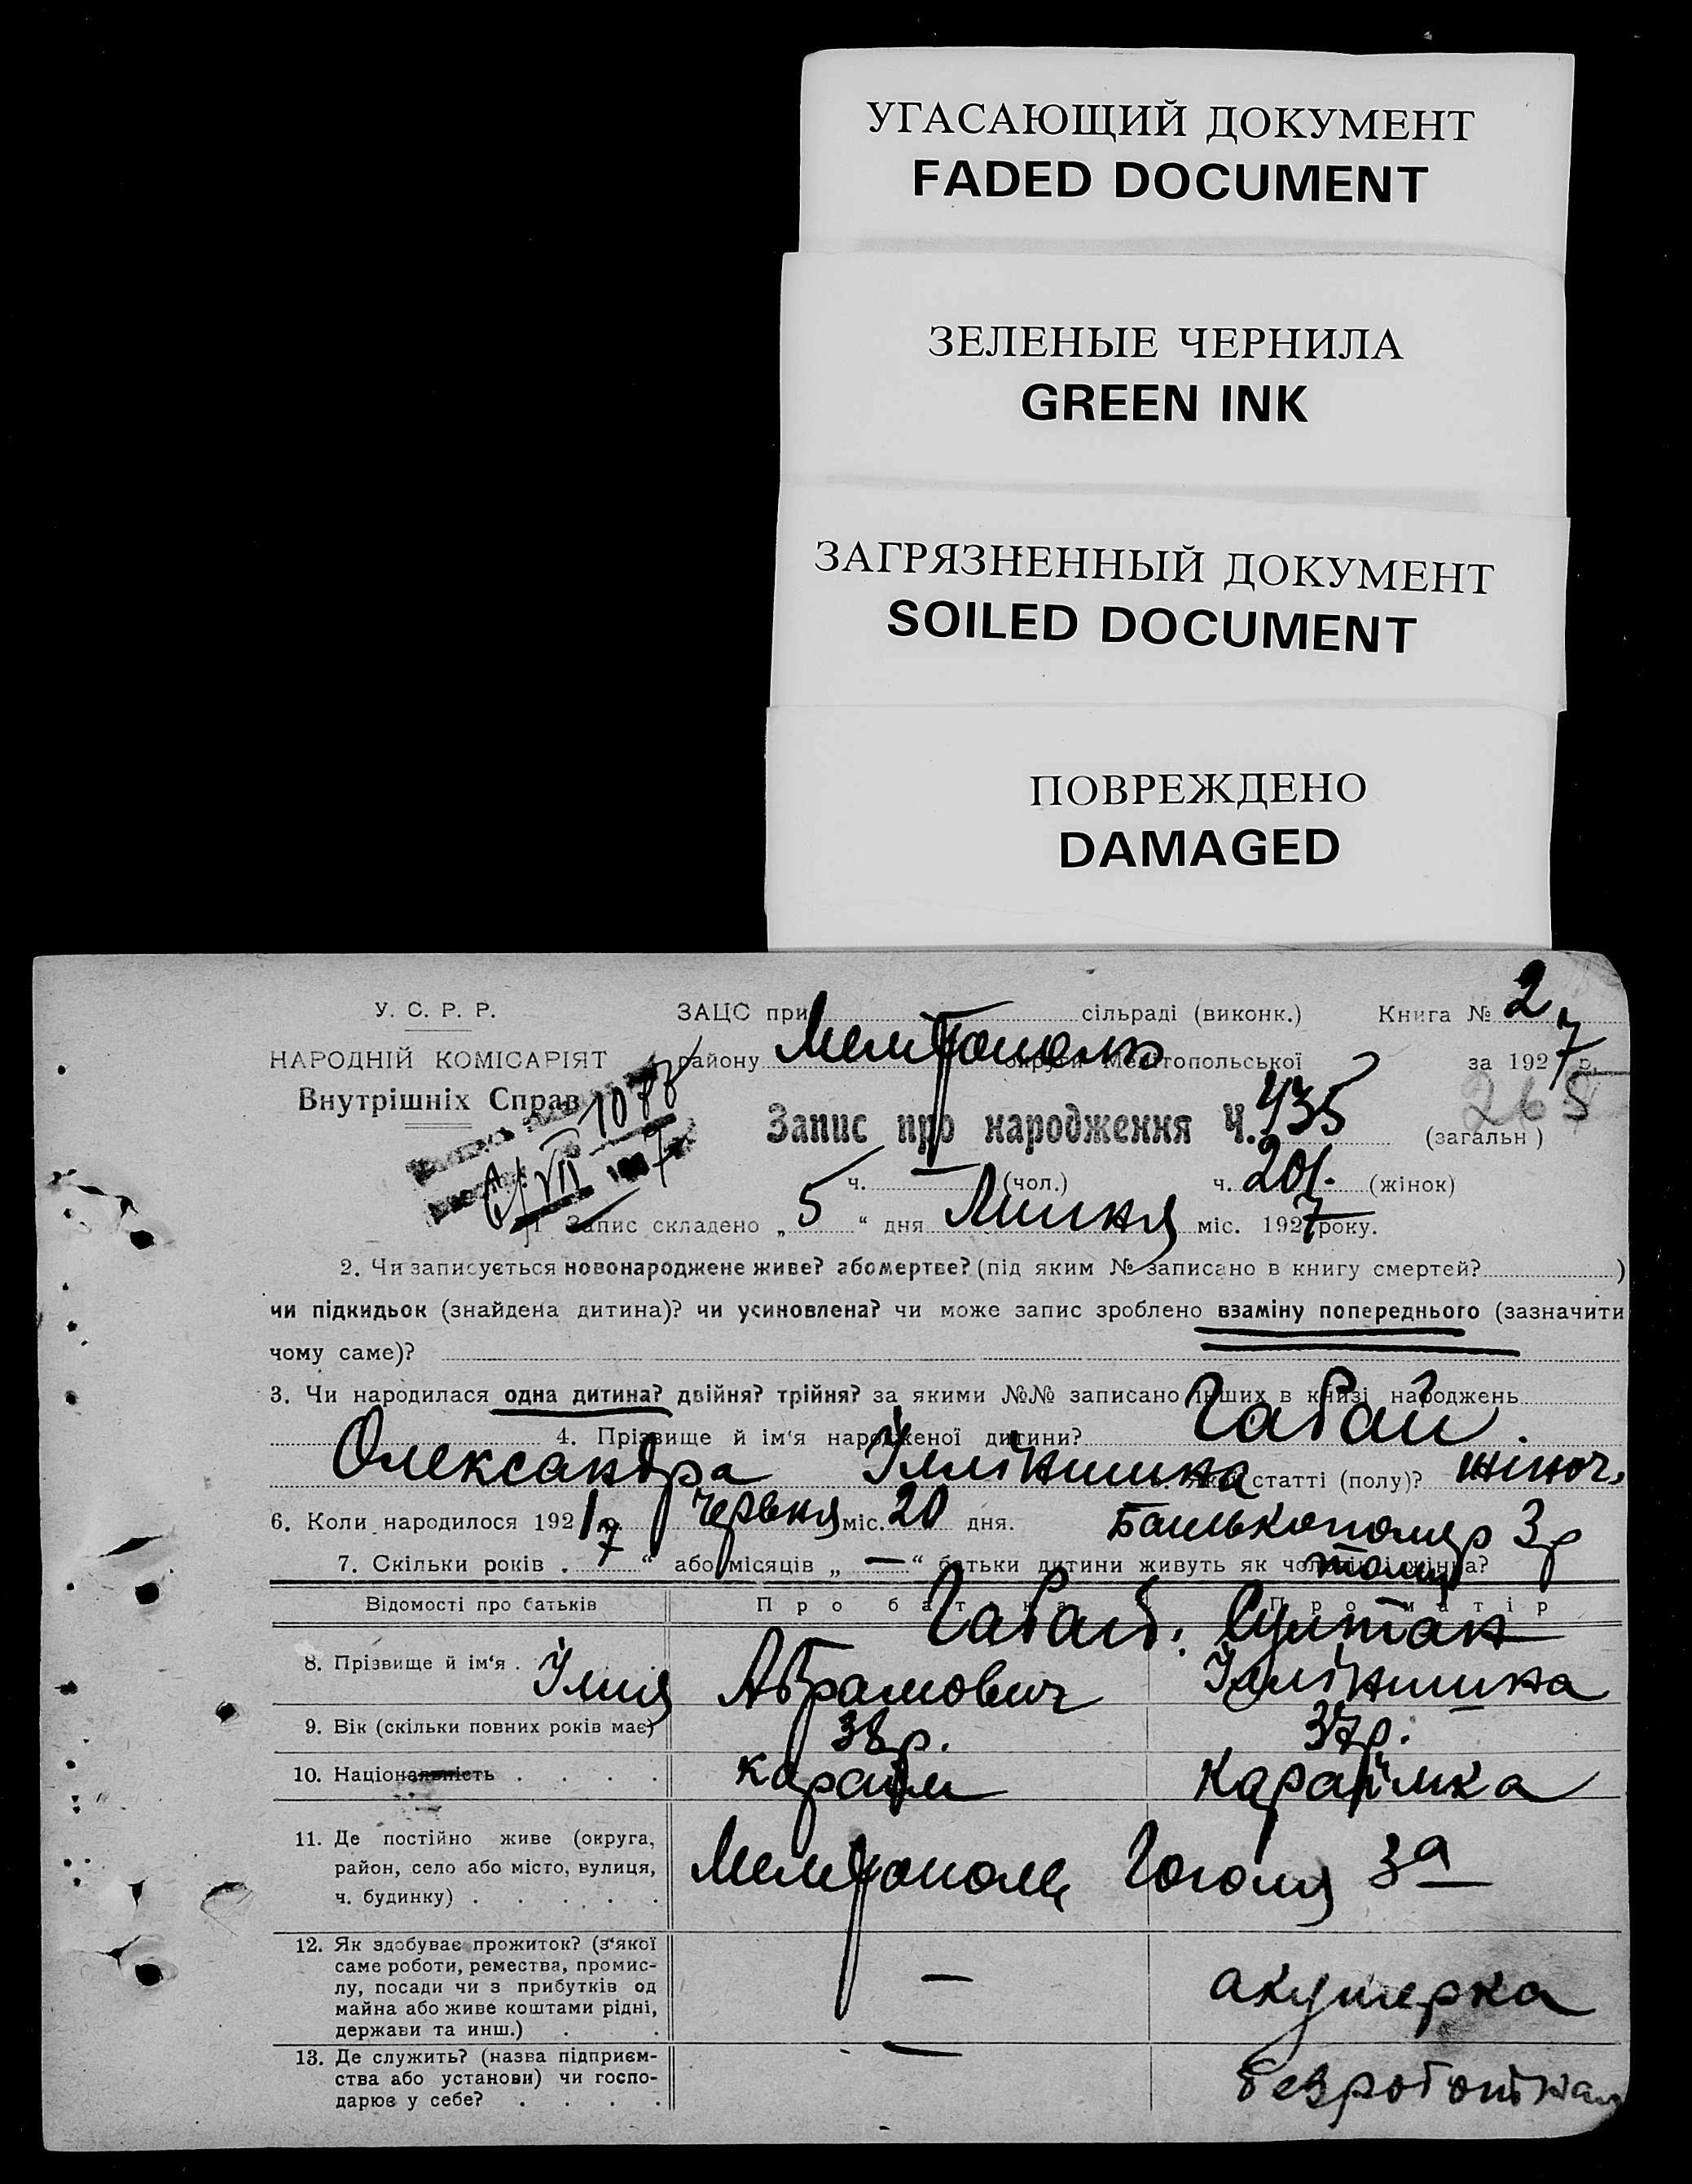 УГАСАЮЩИЙ ДОКУМЕНТ
FADED DOCUMENT
ЗЕЛЕНЫЕ ЧЕРНИЛА
GREEN INK
ЗАГРЯЗНЕННЫЙ ДОКУМЕНТ
SOILED DOCUMENT
ПОВРЕЖДЕНО
DAMAGED
У. С. Р. Р. ЗАЦС при сільраді (виконк.) Книга № 2
НАРОДНІЙ КОМІСАРІЯТ району Мелітополь округи Мелітопольської за 1927 р.
Внутрішніх Справ
265
Запис про народження Ч. 435 (загальн)
ч. — (чол.) ч. 201. (жінок)
1 Запис складено „ 5 “ дня Липня міс. 1927 року.
2. Чи записується новонароджене живе? або мертве? (під яким № записано в книгу смертей? )
чи підкидьок (знайдена дитина)? чи усиновлена? чи може запис зроблено взаміну попереднього (зазначити
чому саме)?
3. Чи народилася одна дитина? двійня? трійня? за якими №№ записано інших в книзі народжень
4. Прізвище й ім'я народженої дитини? Габай.
Олександра Іллінішна статті (полу)? жіноч.
6. Коли народилося 1921 р. червня міс. 20 дня.
7. Скільки років „ 7 “ або місяців „ — “ батьки дитини живуть як чоловік і жінка?
Відомості про батьків Про батька Про матір
8. Прізвище й ім‘я . Габай. Султан
Ілля Абрамович Іллінішна
9. Вік (скільки повних років має) 38 р. 37 р.
10. Національність . . . . караїм караїмка
11. Де постійно живе (округа,
район, село або місто, вулиця,
ч. будинку) . . . . . Мелітополь Гоголя 3а
12. Як здобуває прожиток? (з‘якої
саме роботи, ремества, промис-
лу, посади чи з прибутків од
майна або живе коштами рідні,
держави та инш.) . . — акушерка
13. Де служить? (назва підприєм-
ства або установи) чи госпо-
дарює у себе? . . . . — безробітна